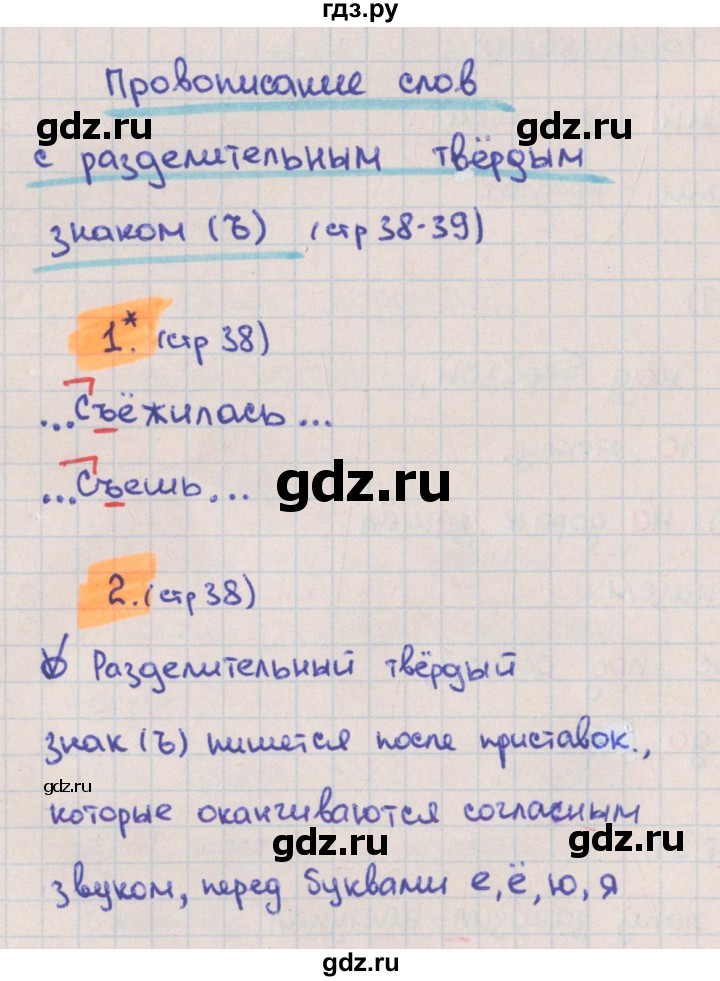 гдз.ру
Провописание слов
gdz.ru
gdz.ru
с разделительным твёрдым
знаком (ъ) (стр 38-39)
1.* (стр 38)
...Съёжилась...
...Съешь...
gdz.ru
2. (стр 38)
Разделительный твёрдый
знак (ъ) пишется после приставок.,
gdz.ru
которые оканчиваются согласным
gdz.ru
gdz.ru
звуком, перед буквами е, ё, ю, я
gdz.ru